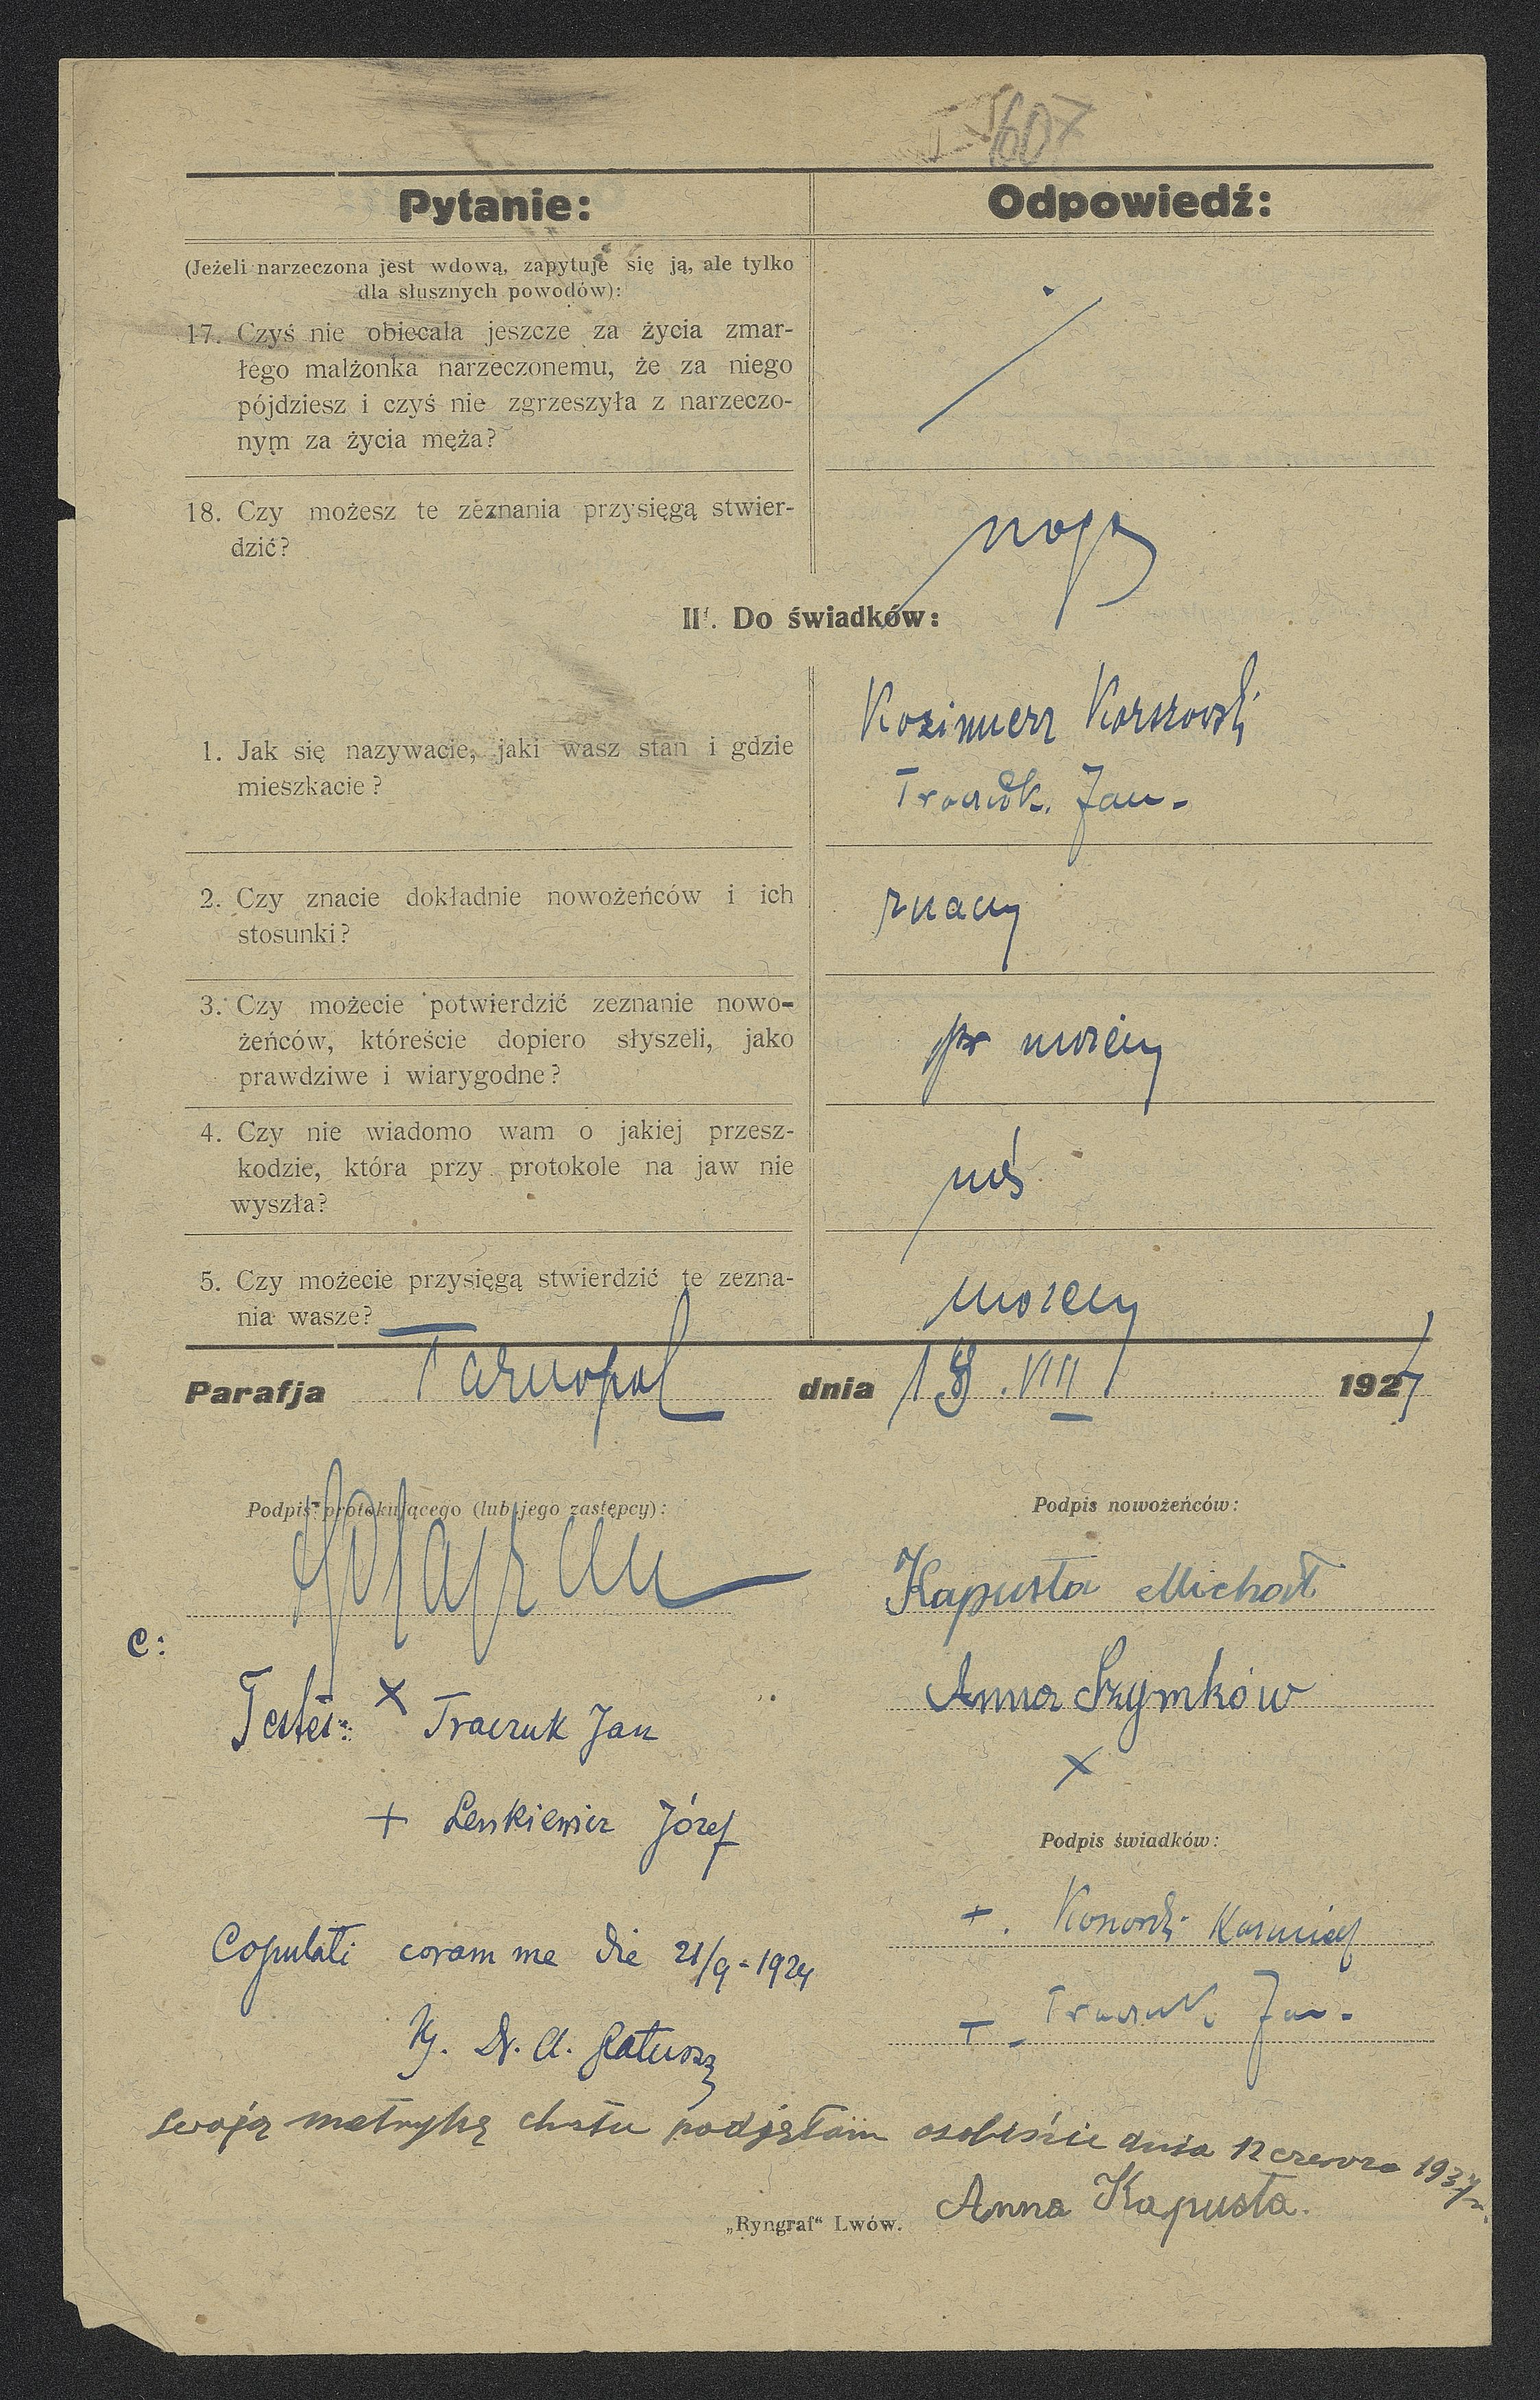 607
Pytanie:
Odpowiedź:
(Jeżeli narzeczona jest wdową, zapytuje się ją, ale tylko
dla słusznych powodów):
17. Czyś nie obiecała jeszcze za życia zmar-
łego małżonka narzeczonemu, że za niego
pójdziesz i czyś nie zgrzeszyła z narzeczo-
nym za życia męża?
18. Czy możesz te zeznania przysięgą stwier-
dzić?
mogę
II. Do świadków:
1. Jak się nazywacie, jaki wasz stan i gdzie
mieszkacie?
Kazimierz
Jan
2. Czy znacie dokładnie nowożeńców i ich
stosunki?
znamy
3. Czy możecie potwierdzić zeznanie nowo-
żeńców, któreście dopiero słyszeli, jako
prawdziwe i wiarygodne?
możemy
4. Czy nie wiadomo wam o jakiej przesz-
kodzie, która przy protokole na jaw nie
wyszła?
nie
5. Czy możecie przysięgą stwierdzić te zezna-
nia wasze?
możemy
Parafja Tarnopol dnia 18. VIII 1927
Podpis protokułącego (lub jego zastępcy):
Podpis nowożeńców:
Kapusta Michał
C:
Anna Szymków
x
Testes: x Traczuk Jan
+ Lenkiewicz Józef
Podpis świadków:
+.
Copulati coram me die 21/9 - 1924
+ Jan
Kj. Dr. A. Ratusz
swoją metrykę chrztu podjęłam osobiście dnia 12 czerwca 1937
Anna Kapusta.
„Ryngraf“ Lwów.